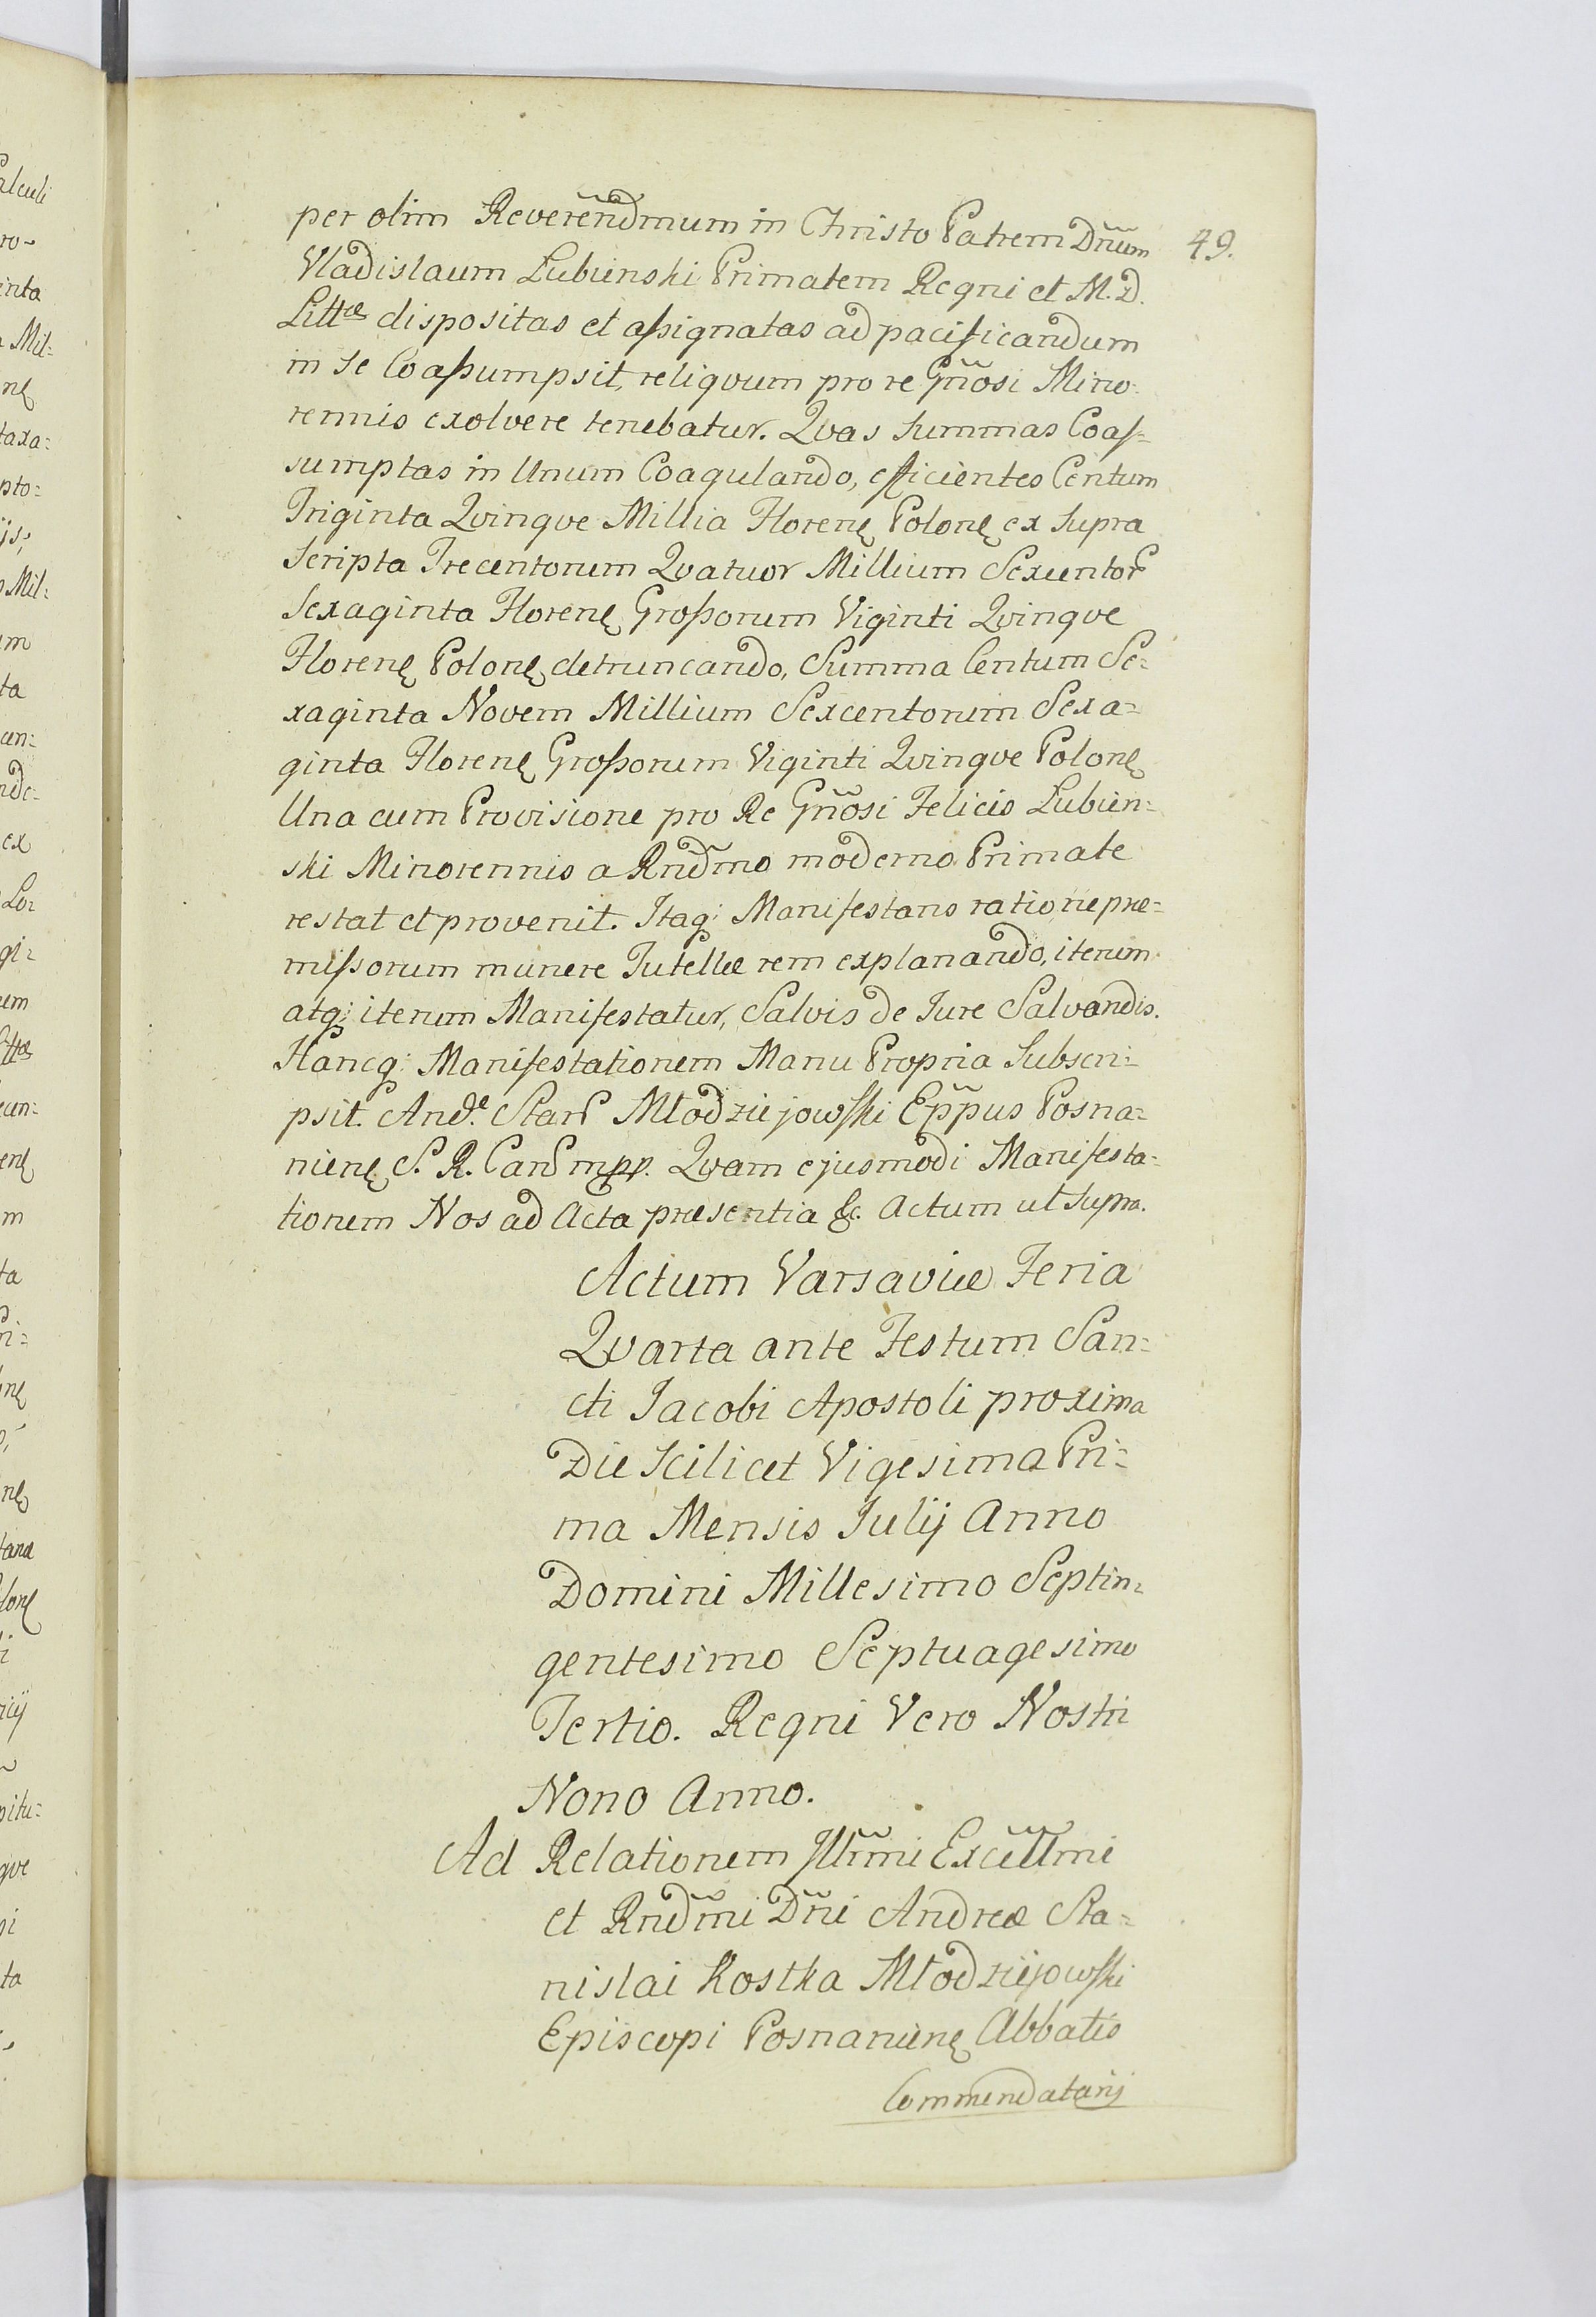 per olim Reverẽndmum in Christo Patrem Dñum
49.
Vladislaum Lubienski Primatem Regni et M. D.
Littæ dispositas et aſsignatas ad pacificandum
in se Coaſsumpsit, reliqvum pro re Gñosi Mino-
rennis exolvere tenebatur. Qvas Summas Coaſ=
sumptas in Unum Coagulando, efficientes Centum
Triginta Qvinqve Millia Florenę Polonę ex Supra
Scripta Trecentorum Qvatuor Millium Sexcentor
Sexaginta Florenę Groſsorum Viginti Qvinqve
Florenę Polonę detruncando, Summa Centum Se=
xaginta Novem Millium Sexcentorum Sexa=
ginta Florenę Groſsorum Viginti Qvinqve Polonę
Una cum Provisione pro Re Gñosi Felicis Lubien=
ski Minorennis a Rndm̃o moderno Primate
restat et provenit. Itaq; Manifestans ratione præ=
miſsorum munere Tutellæ rem explanando, iterum
atq; iterum Manifestatur, Salvis de Jure Salvandis.
Hancq; Manifestationem Manu Propria Subscri=
psit. And.e Stan Młodzieiowſki Epp̃us Posna=
nienę S. R. Can mpp. Qvam ejusmodi Manifesta=
tionem Nos ad Acta præsentia &c. Actum ut Supra.
Actum Varsaviæ Feria
Qvarta ante Festum San=
cti Jacobi Apostoli proxima
Die Scilicet Vigesima Pri=
ma Mensis Julij Anno
Domini Millesimo Septin=
gentesimo Septuagesimo
Tertio. Regni Vero Nostri
Nono Anno.
Ad Relationem Jllm̃i Excellm̃i
et Rndm̃i Dñi Andreæ Sta=
nislai Kostka Młodziejowſki
Episcopi Posnanienę Abbatis
Commendatarij